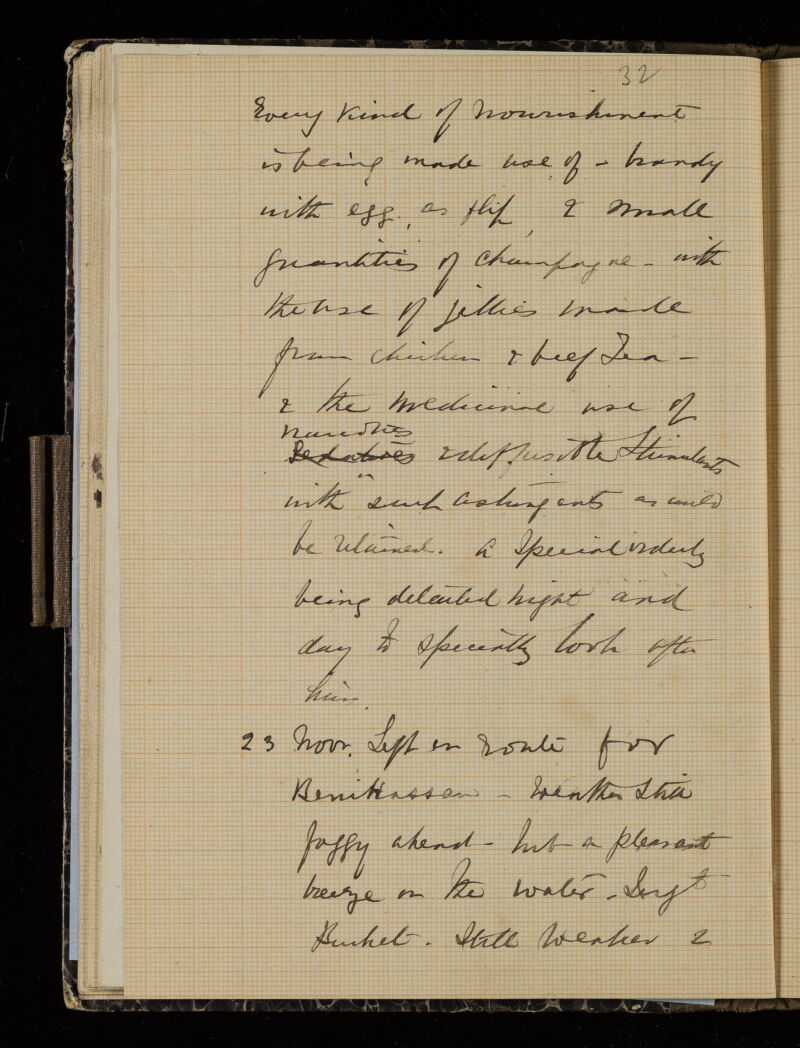 32
Every kind of nourishment
is being made use of - brandy
with egg, as flip, & small
quantities of champagne - with
the use of jellies made
from chicken & beef Tea -
& the medicinal use of
narcotics
Sedatives & diffusible Stimulants
with such astringents as could
be retained. A Special orderly
being detailed night and
day to specially look after
him.
23 Novr. Left en route for
Beni Hassan - Weather Still
foggy ahead - but a pleasant
breeze on the water. Sergt
Burket. Still weaker &